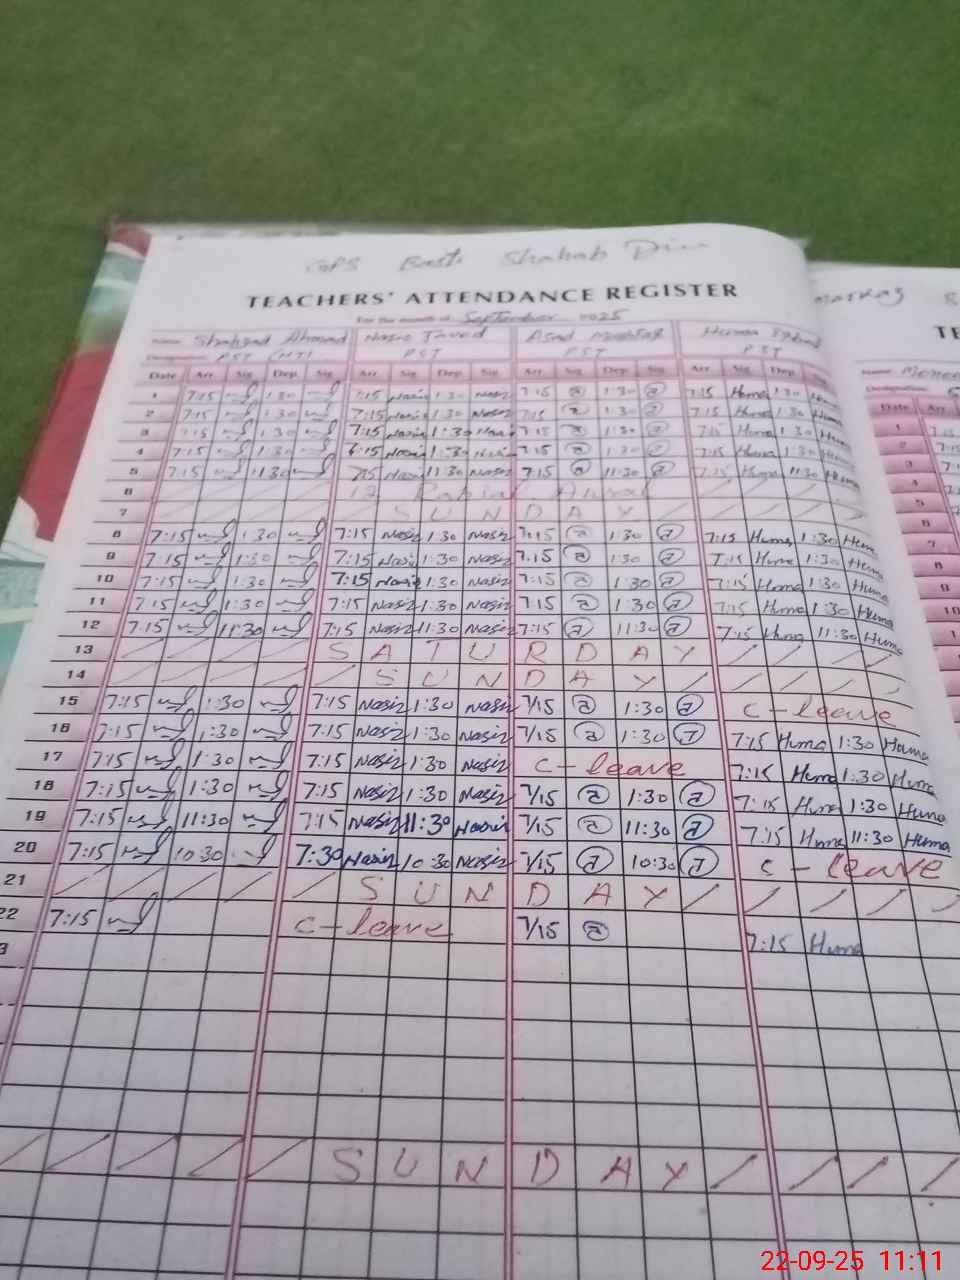 GPS Basti Shahab Din
TEACHERS' ATTENDANCE REGISTER
For the month of September 2025
Name Shahzad Ahmad Nasir Javed Asad Mushtaq Huma
Designation PST PST PST PST
Date Arr. Sig. Dep. Sig. Arr. Sig. Dep. Sig. Arr. Sig. Dep. Sig. Arr. Sig. Dep.
1 7:15 1:30 7:15 Nasir 1:30 Nasir 7:15 a 1:30 a 7:15 Huma 1:30 Huma
2 7:15 1:30 7:15 Nasir 1:30 Nasir 7:15 a 1:30 a 7:15 Huma 1:30 Huma
3 7:15 1:30 7:15 Nasir 1:30 Nasir 7:15 a 1:30 a 7:15 Huma 1:30 Huma
4 7:15 1:30 Nasir 1:30 Nasir 7:15 a 1:30 a 7:15 Huma 1:30 Huma
5 7:15 11:30 7:15 Nasir 11:30 Nasir 7:15 a 11:30 a 7:15 Huma 11:30 Huma
6 12 Rabiul Awal
7 SUNDAY
8 7:15 1:30 7:15 Nasir 1:30 Nasir 7:15 a 1:30 a 7:15 Huma 1:30 Huma
9 7:15 1:30 7:15 Nasir 1:30 Nasir 7:15 a 1:30 a 7:15 Huma 1:30 Huma
10 7:15 1:30 7:15 Nasir 1:30 Nasir 7:15 a 1:30 a 7:15 Huma 1:30 Huma
11 7:15 1:30 7:15 Nasir 1:30 Nasir 7:15 a 1:30 a 7:15 Huma 1:30 Huma
12 7:15 11:30 7:15 Nasir 11:30 Nasir 7:15 a 11:30 a 7:15 Huma 11:30 Huma
13 SATURDAY
14 SUNDAY
15 7:15 1:30 7:15 Nasir 1:30 Nasir 7/15 a 1:30 a c-leave
16 7:15 1:30 7:15 Nasir 1:30 Nasir 7/15 a 1:30 a 7:15 Huma 1:30 Huma
17 7:15 1:30 7:15 Nasir 1:30 Nasir c-leave 7:15 Huma 1:30 Huma
18 7:15 1:30 7:15 Nasir 1:30 Nasir 7/15 a 1:30 a 7:15 Huma 1:30 Huma
19 7:15 11:30 7:15 Nasir 11:30 Nasir 7/15 a 11:30 a 7:15 Huma 11:30 Huma
20 7:15 10:30 7:30 Nasir 10:30 Nasir 7/15 a 10:30 a c-leave
21 SUNDAY
22 7:15 c-leave 7/15 a 7:15 Huma
3
SUNDAY
Markaz
TE
Name
Designation
Date Arr.
1
2
3
4
5
6
7
8
9
10
22-09-25 11:11